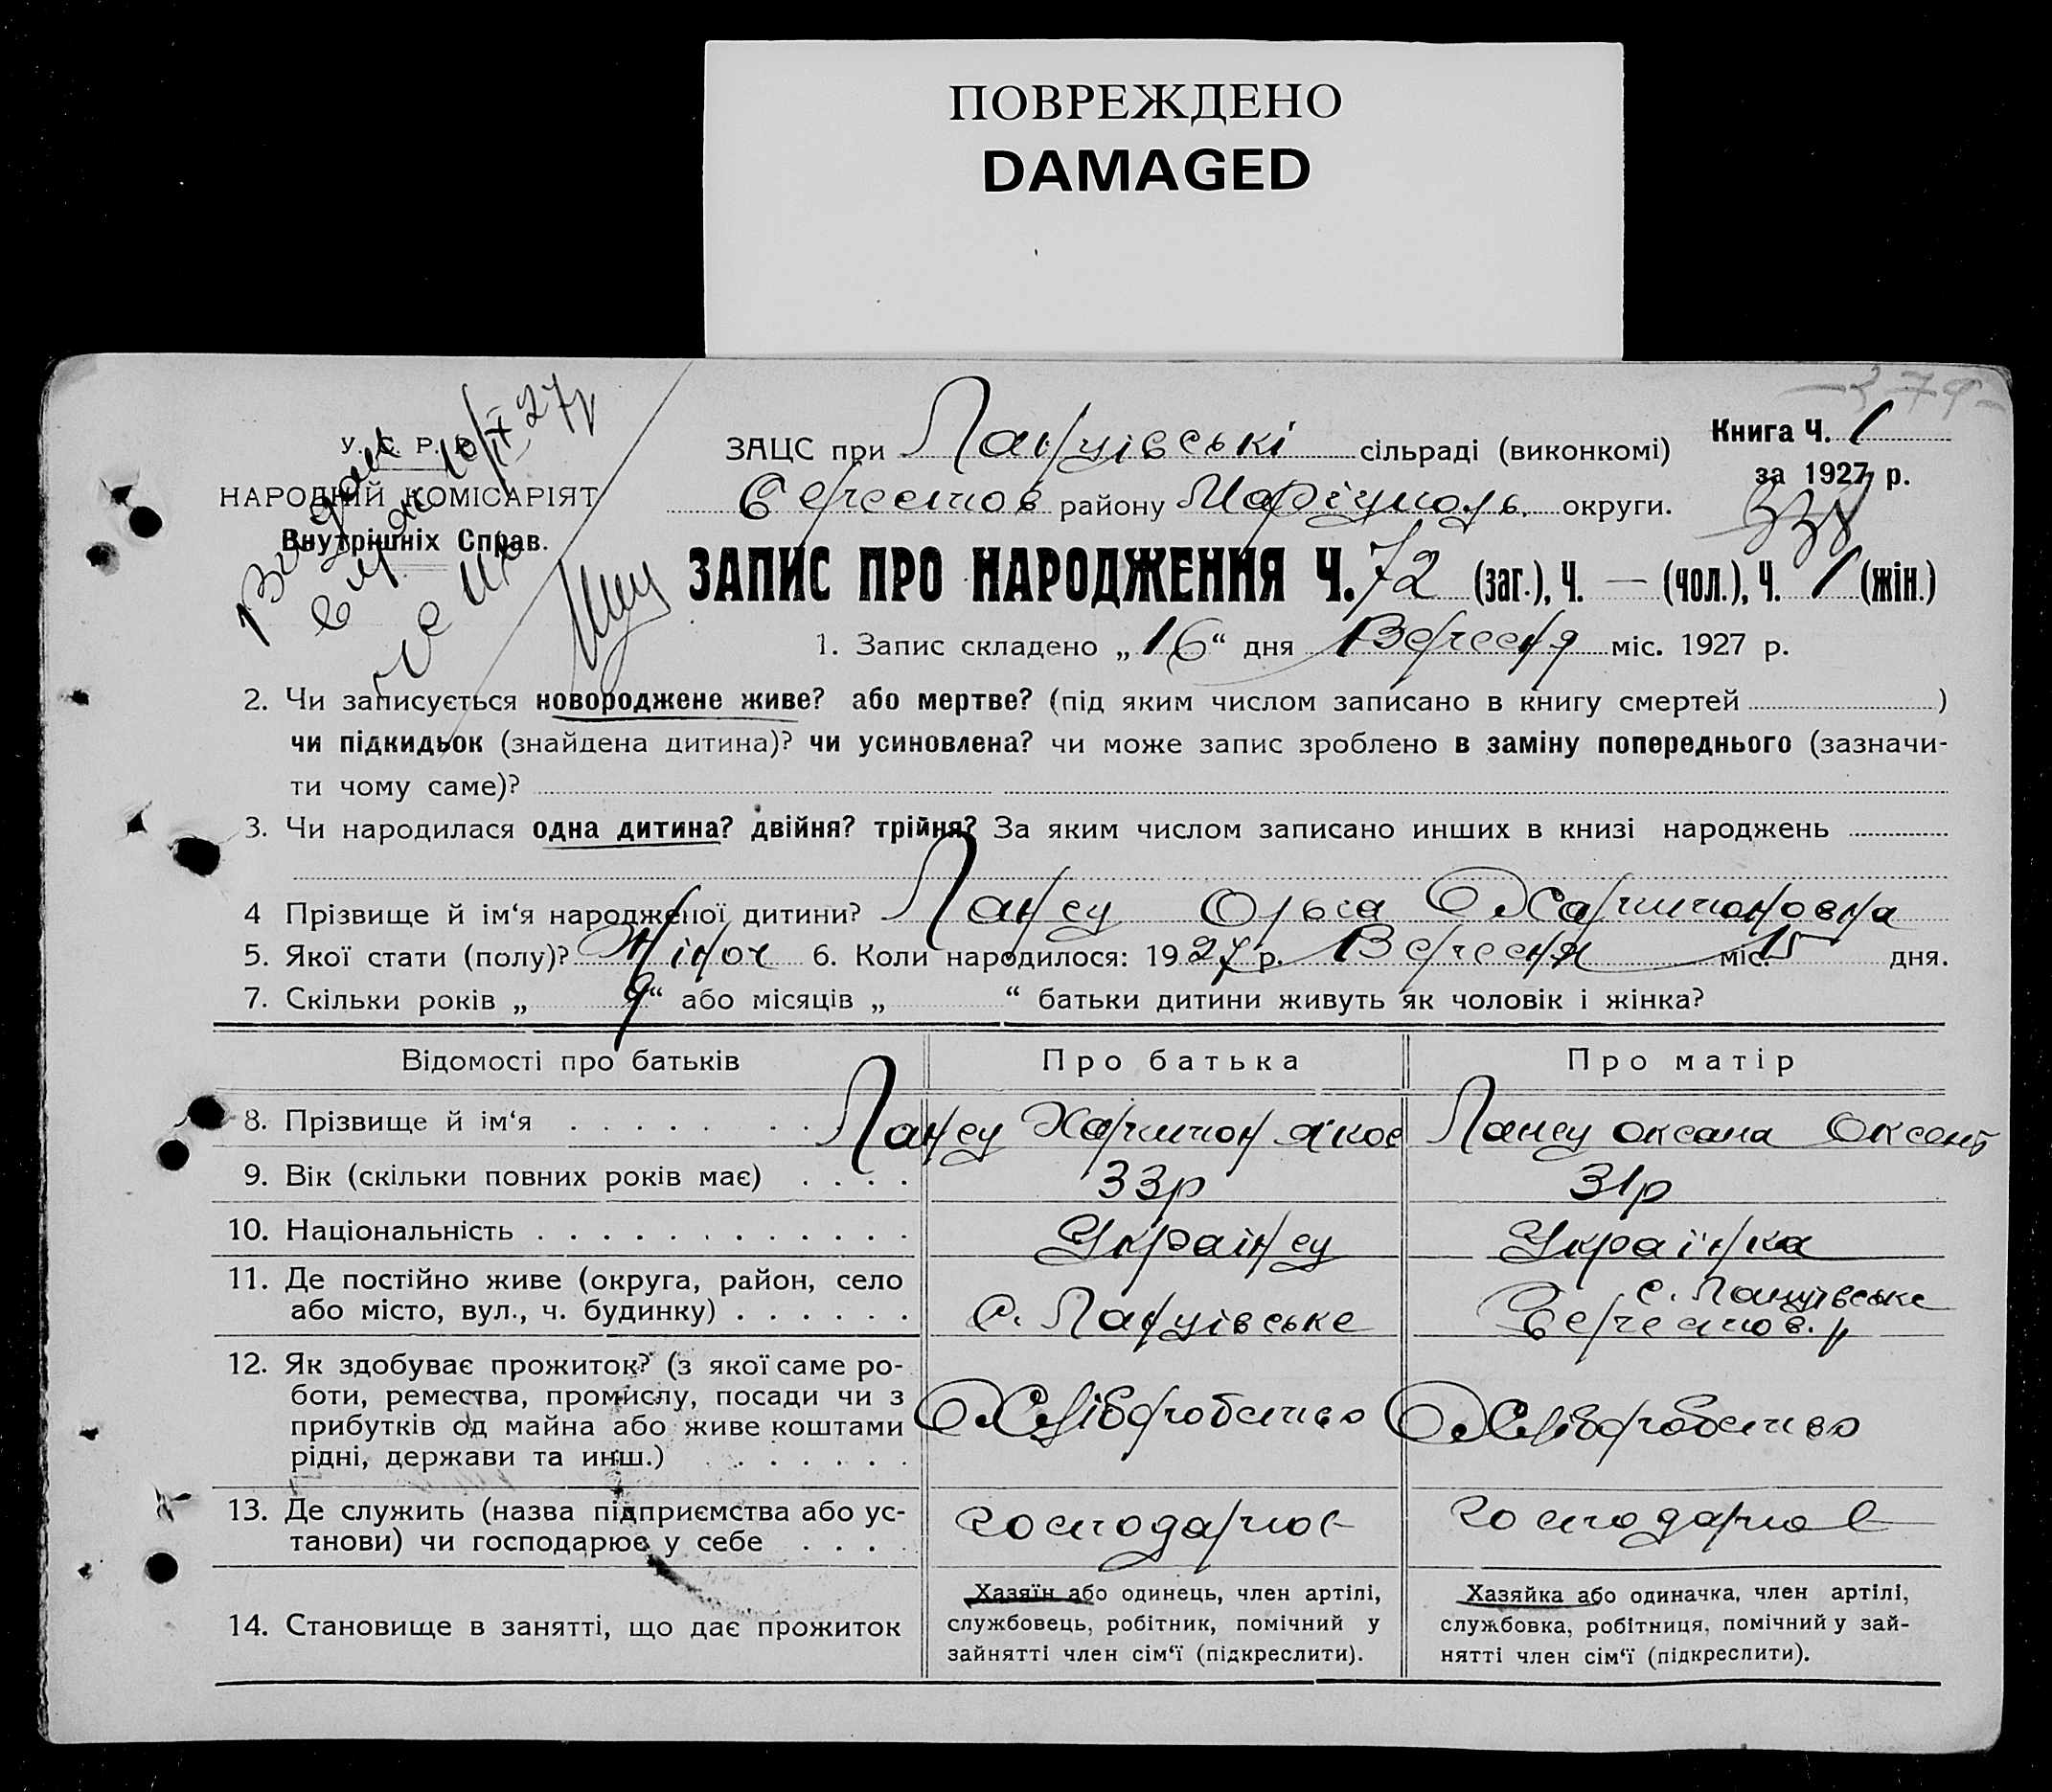 ПОВРЕЖДЕНО
DAMAGED
379
У. С. Р. Р.
НАРОДНІЙ КОМІСАРІЯТ
Внутрішніх Справ.
ЗАЦС при Ланцівські сільраді (виконкомі)
Берестов району Маріуполь. округи.
Книга Ч. 1
за 1927 р.
ЗАПИС ПРО НАРОДЖЕННЯ Ч. 72 (заг.), Ч. — (чол.), Ч. 1 (жін.)
1. Запис складено „16“ дня Вересня міс. 1927 р.
2. Чи записується новороджене живе? або мертве? (під яким числом записано в книгу смертей )
чи підкидьок (знайдена дитина)? чи усиновлена? чи може запис зроблено в заміну попереднього (зазначи-
ти чому саме)?
3. Чи народилася одна дитина? двійня? трійня? За яким числом записано инших в книзі народжень
4 Прізвище й ім‘я народженої дитини? Ольга Харитоновна
5. Якої стати (полу)? Жіноч 6. Коли народилося: 1927 р. Вересня міс. 15 дня.
7. Скільки років „ 9“ або місяців „ “ батьки дитини живуть як чоловік і жінка?
Відомості про батьків Про батька Про матір
8. Прізвище й ім‘я Харитон Яков Оксана Оксент
9. Вік (скільки повних років має) 33р 31р
10. Національність Українец Українка
11. Де постійно живе (округа, район, село
або місто, вул., ч. будинку) с. Ланцівське с. Ланцівське
Берестов. р
12. Як здобуває прожиток? (з якої саме ро-
боти, ремества, промислу, посади чи з
прибутків од майна або живе коштами
рідні, держави та инш.) Хліборобство Хліборобство
13. Де служить (назва підприємства або ус-
танови) чи господарює у себе господарює господарює
14. Становище в занятті, що дає прожиток
Хазяїн або одинець, член артілі,
службовець, робітник, помічний у
зайнятті член сім‘ї (підкреслити).
Хазяйка або одиначка, член артілі,
службовка, робітниця, помічний у зай-
нятті член сім‘ї (підкреслити).